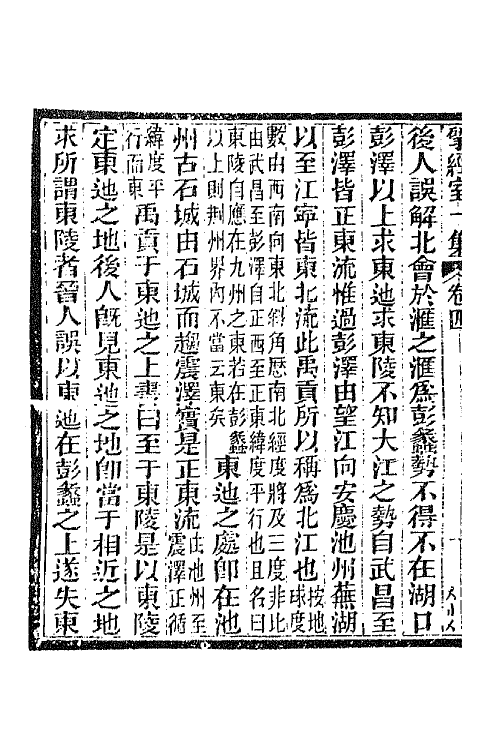 揅經室一集 卷四
後人誤解北會於滙之滙爲彭蠡勢不得不在湖口
彭澤以上求東迆求東陵不知大江之勢自武昌至
彭澤皆正東流惟過彭澤由望江向安慶池州蕪湖
以至江寜皆東北流此禹貢所以稱爲北江也按地球度
數由西南向東北斜角歴南北經度將及三度非比
由武昌至彭澤自正西至正東緯度平行也且名曰
東陵自應在九州之東若在彭蠡
以上則荆州界內不當云東矣東迆之處卽在池
州古石城由石城而趨震澤實是正東流由池州至震澤正循
緯度平行而東禹貢于東迆之上書曰至于東陵是以東陵
定東迆之地後人旣見東迆之地卽當于相近之地
求所謂東陵者晉人誤以東迆在彭蠡之上遂失東